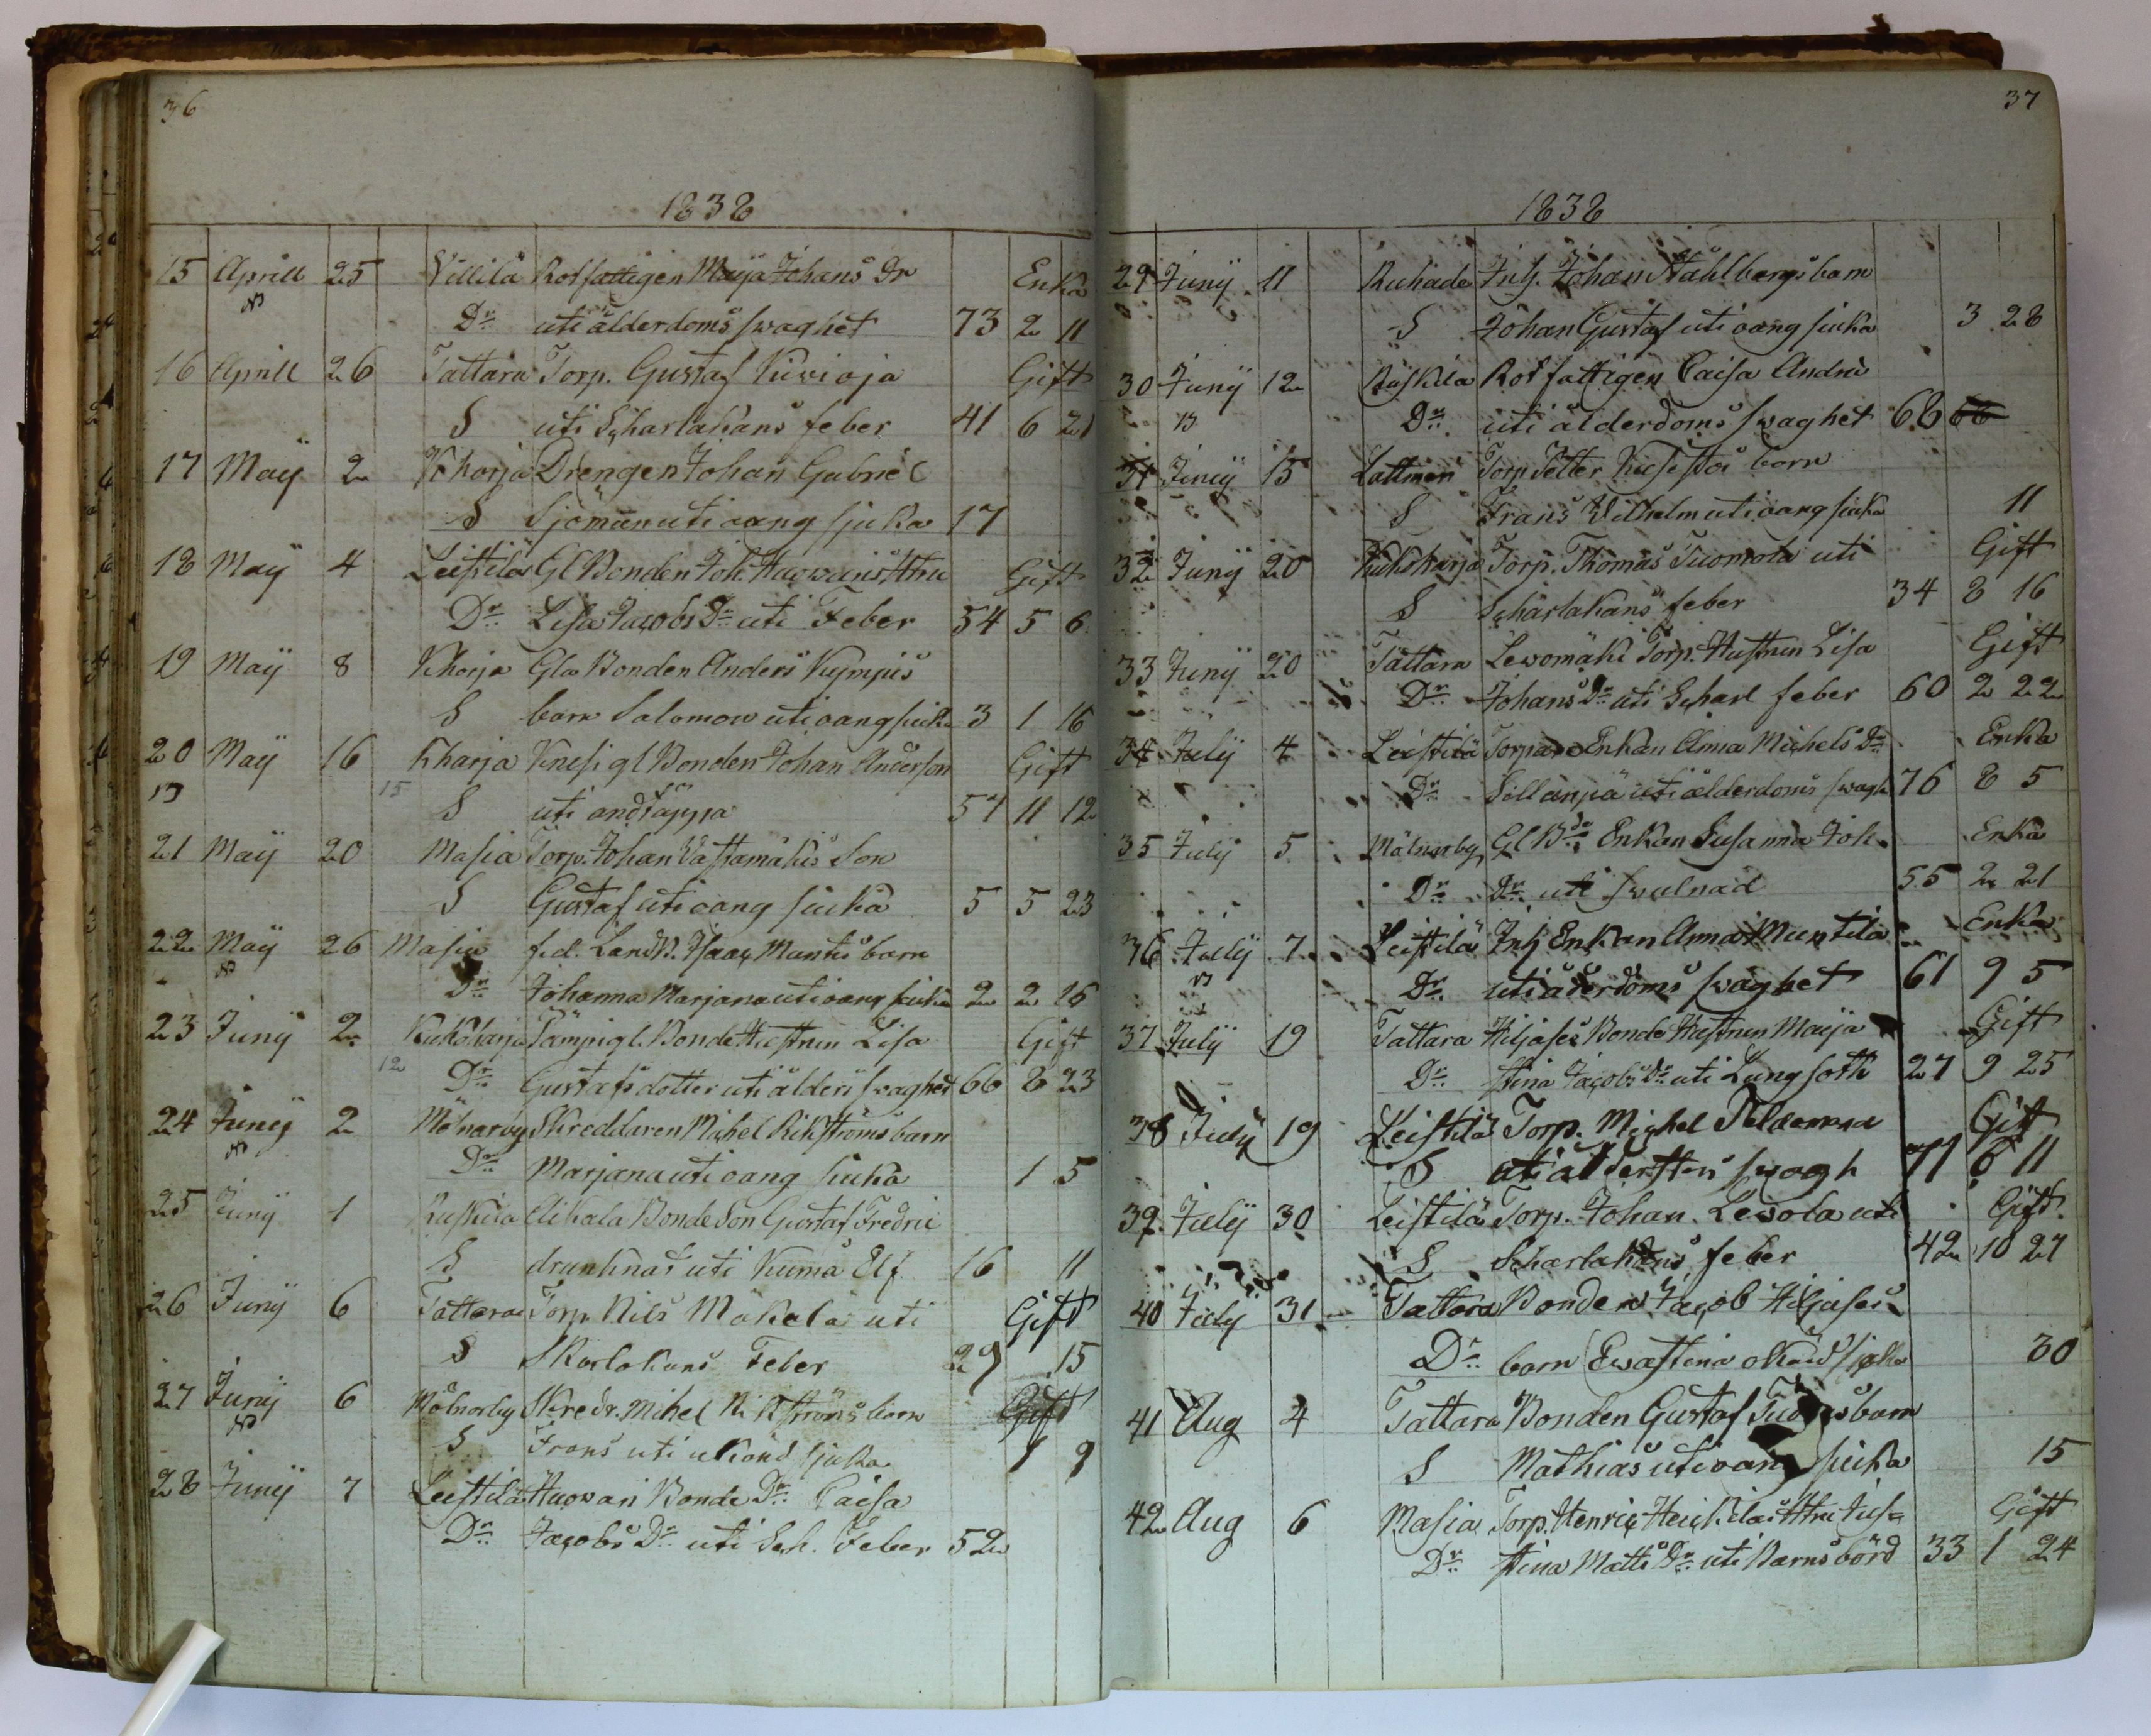 36
1838
15 Aprill 25 Villilä Rotfattigen Maija Johans Dr Enka
Dr uti ålderdoms swaghet 73 2 11
16 Aprill 26 Tattara Torp. Gustaf Kiwioja Gift
S uti Scharlakans feber 41 6 21
17 Maij 2 Kharja Drengen Johan Gabriel
S Sjöman uti oang sjuka 17
18 Maij 4 Leistilä Gl Bonden Joh. Hugwais Htru Gift
Dr Lisa Jacobs Dr uti Feber 54 5 6
19 Maij 8 Kharja Gla Bonden Anders Kympis
S barn Salomon uti oang sjuka 3 1 16
20 Maij 16 Kharja Knesi gl Bonden Johan Anderson Gift
15 S uti andtäppa 57 11 12
21 Maij 20 Masia Torp. Johan Vastamäkis Son
S Gustaf uti oang sjuka 5 5 23
22 Maij 26 Masia f.d. Landb. Isaac Mantis barn
Dr Johanna Marjana uti oang sjuka 2 2 16
23 Junij 2 Kukoharja Pämpi gl. Bonde Hustrun Lisa Gift
12 Dr Gustafs dotter uti ålders swaghet 66 8 23
24 Junij 2 Mölnarby Skreddaren Mickel Rikströms barn
Dr Marjana uti oang sjuka 1 5
25 Junij 1 Ruskila Aikala Bonde Son Gustaf Fredric
S drunknat uti Kumå Elf 16 11
26 Junij 6 Tattara Torp. Nils Mäkelä uti Gift
S Skarlakans Feber 29 15
27 Junij 6 Mölnarby Skredr. Mihel Rikströms barn Gift
S Frans uti okiänd sjuka 1 9
28 Junij 7 Leistilä Hugwari Bonde Dr Caisa
Dr Jacobs Dr uti Sch. Feber 52
37
1838
29 Junij 11 Ruhade Inh. Johan Ståhlbergs barn
S Johan Gustaf uti oang sjuka 3 28
30 Junij 12 Ruskila Rotfattigen Caisa Andrs
Dr uti ålderdoms swaghet 68 68
31 Junij 15 Lattmeri Torp. Petter barn
S Frans Vilhelm uti oang sjuka 11
32 Junij 20 Kukoharja Torp. Thomas Tuomola uti Gift
S Scharlakans feber 34 8 16
33 Junij 20 Tattara Lewomäki Torp. Hustrun Lisa Gift
Dr Johans Dr uti Scharl feber 60 2 22
34 Julij 4 Leistilä Torpare Enkan Anna Michels Dr Enka
Dr Sillanpä uti ålderdoms swagh 76 8 5
35 Julij 5 Mölnarby Gl Bde Enkan Susanna Joh. Enka
Dr Dr uti swulnad 55 2 21
36 Julij 7 Leistilä Inh Enkan Anna Muntila Enka
Dr uti åderdoms swaghet 61 9 5
37 Julij 19 Tattara Hiljases Bonde Hustrun Maija Gift
Dr Stina Jacobs Dr uti Lungsott 27 9 25
38 Julij 19 Leistilä Torp. Michel Peldenma Gift
S uti ålderstens swagh 71 6 11
39 Julij 30 Leistilä Torp. Johan Lewola uti Gift
S Scharlakans feber 42 10 27
40 Julij 31 Tattara Bonden Jacob Hiljases
Dr barn Ewastina okänd sjuka 30
41 Aug 4 Tattara Bonden Gustaf barn
S Mathias uti oang sjuka 15
42 Aug 6 Masia Torp. Henric Heickiläs Htru Gift
Dr Stina Matts Dr uti Barnsbörd 33 1 24